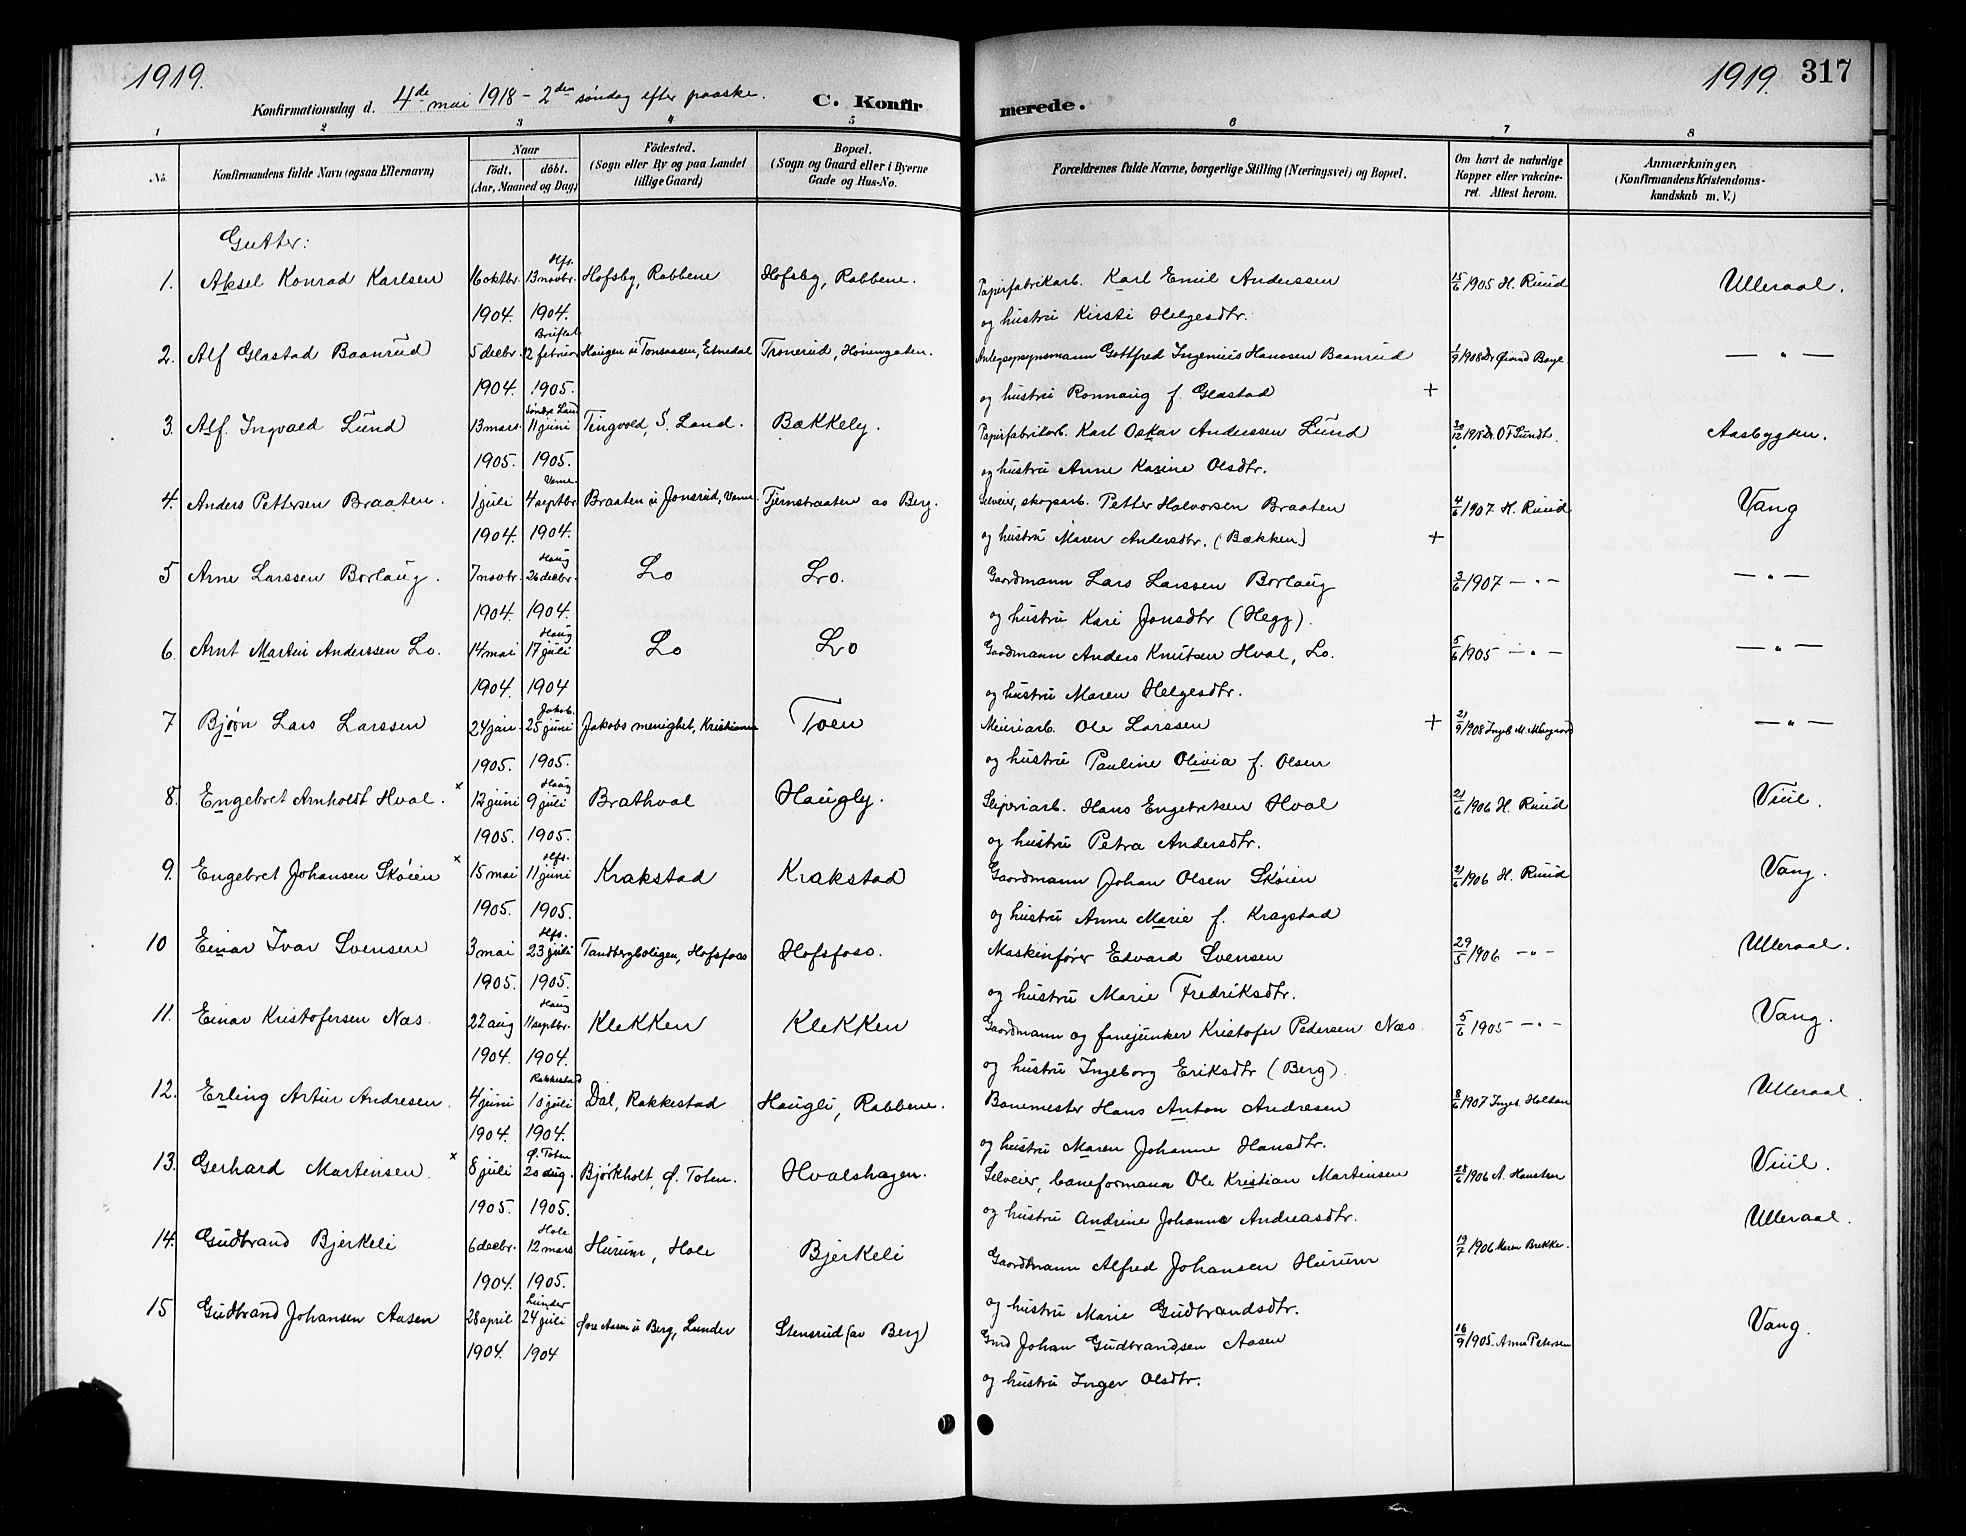 1919.
Konfirmationsdag d. 4de mai 1918 - 2den søndag efter paaske.
C. Konfirmerede.
1919. 317
1 2 3 4 5 6 7 8
No.
Konfirmandens fulde Navn (ogsaa Efternavn)
Naar
födt. döbt.
(Aar, Maaned og Dag)
Födested.
(Sogn eller By og paa Landet
tillige Gaard)
Bopæl.
(Sogn og Gaard eller i Byerne
Gade og Hus-No.
Forældrenes fulde Navne, borgerlige Stilling (Næringsvei) og Bopæl.
Om havt de naturlige
Kopper eller vakcine-
ret. Attest herom.
Anmærkninger,
(Konfirmandens Kristendoms-
kundskab m. V.)
Gutter:
Hfs.
1. Aksel Konrad Karlsen 16 oktbr. 13 novbr. Hofsby, Rabbene Hofsby, Rabbene. Papirfabrikarb. Karl Emil Anderssen 15/6 1905 H. Ruud Ulleraal.
1904. 1904. og hustru Kirsti Helgesdtr.
Bruflat
2. Alf Glastad Baanrud 5 decbr. 12 februar Haugen u Tonsaasen, Etnedal Tronerud, Hønengaten. Anlegsopsynsmann Gottfred Ingenius Hanssen Baanrud 1/9 1908 Dr — " —
1904. 1905. og hustru Ronnaug f. Glastad +
Søndre Land
3. Alf Ingvald Lund 13 mars. 11 juni Tingvold, S. Land. Bækkely. Papirfabrikarb. Karl Oskar Anderssen Lund 30/12 1918 Dr. O F Sundt. Aasbygden.
1905. 1905. og hustru Anne Karine Olsdtr.
Venne.
4. Anders Pettersen Braaten. 1 juli 4 septbr. Braaten u Jonsrud, Venne. Tjernstraaten av Berg. Selveier, skogsarb. Petter Halvorsen Braaten 4/6 1907 H. Ruud Vang
1904. 1904. og hustru Maren Andersdtr. (Bækken) +
Haug
5 Arne Larssen Borlaug. 7 novbr. 26 decbr. Lo Lo. Gaardmann Lars Larssen Borlaug 3/6 1907 — " — — " —
1904. 1904. og hustru Kari Jonsdtr (Hegg).
Haug
6. Arnt Martin Anderssen Lo. 14 mai 17 juli Lo Lo Gaardmann Anders Knutsen Hval, Lo. 5/6 1905 — " — — " —
1904. 1904 og hustru Maren Helgesdtr.
Jakob.
7 Bjørn Lars Larssen 24 jan. 25 juni Jakobs menighet, Kristiania Toen Meieriarb. Ole Larssen + 21/9 1908 Ingeb. M. — " —
1905. 1905. og hustru Pauline Olivia f. Olsen
Haug
8. Engebret Arnholdt Hval. x 12 juni 9 juli Brathval Haugly. Sliperiarb. Hans Engebretsen Hval 21/6 1906 H. Ruud Viul.
1905. 1905. og hustru Petra Andersdtr.
Hfs.
9. Engebret Johansen Skøien x 15 mai 11 juni Krakstad Krakstad Gaardmann Johan Olsen Skøien 21/6 1906 H. Ruud Vang.
1905. 1905. og hustru Anne Marie f. Kragstad
Hfs.
10 Einar Ivar Svensen 3 mai 23 juli Tandbergboligen, Hofsfoss Hofsfoss. Maskinfører Edvard Svensen 29/5 1906 — " — Ulleraal.
1905. 1905. og hustru Marie Fredriksdtr.
Haug
11. Einar Kristofersen Næs. 22 aug 11 septbr. Klekken Klekken Gaardmann og fanejunker Kristofer Pedersen Næs. 5/6 1905 — " — Vang.
1904. 1904. og hustru Ingeborg Eriksdtr (Berg).
Rakkestad
12. Erling Artur Andresen. 4 juni 10 juli Dal, Rakkestad Haugli, Rabbene. Banemester Hans Anton Andresen 8/6 1907 Ingeb. Holtan Ulleraal.
1904. 1904. og hustru Maren Johanne Hansdtr.
Ø. Toten
13. Gerhard Martinsen. x 8 juli 20 aug. Bjørkholt, Ø. Toten. Hvalshagen. Selveier, baneformann Ole Kristian Martinsen 28/6 1906 A. Viul.
1905. 1905. og hustru Andrine Johanne Andreasdtr.
Hole
14. Gudbrand Bjerkeli 6 decbr. 12 mars Hurum, Hole Bjerkeli Gaardmann Alfred Johansen Hurum 19/7 1906 Maren Brekke. Ulleraal.
1904. 1905. og hustru Marie Gudbrandsdtr.
Lunder
15 Gudbrand Johansen Aasen 28 april 24 juli Øvre Aasen u Berg, Lunder Stensrud (av Berg) Gmd Johan Gudbrandsen Aasen 16/9 1905. Anna Petersen Vang.
1904. 1904 og hustru Inger Olsdtr.